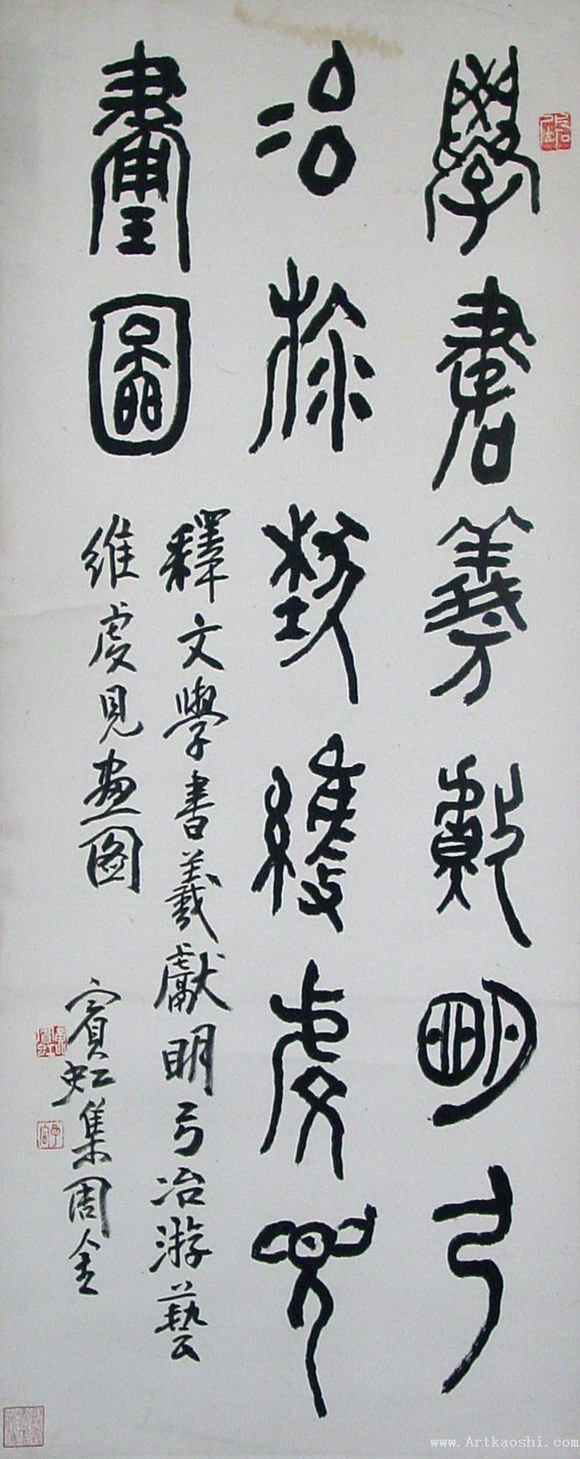 學書羲獻明弓
冶游藝維虔見
畫圖
釋文學書羲獻明弓冶游藝
維虔見画图
賓虹集周金
www.Artkaoshi.com